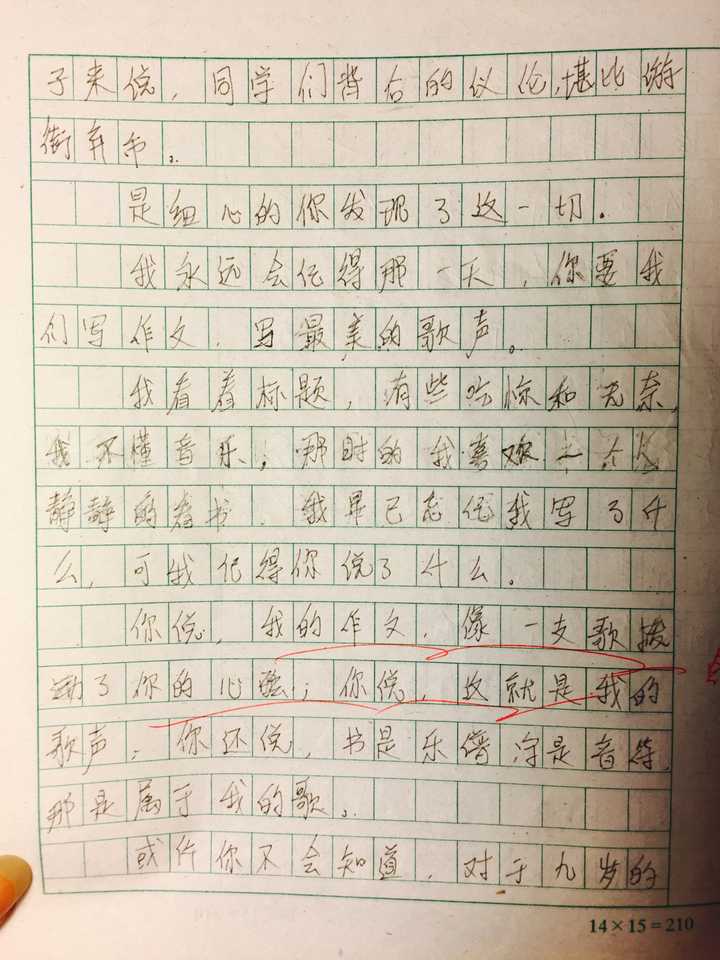 子来说，同学们背后的议论，堪比游
街弃市。
是细心的你发现了这一切。
我永远会记得那一天，你要我
们写作文，写最美的歌声。
我看着标题，有些吃惊和无奈，
我不懂音乐，那时的我喜欢一个人
静静的看书，我是已忘记我写了什
么，可我记得你说了什么。
你说，我的作文，像一支歌拨
动了你的心弦；你说，这就是我的
歌声；你还说，书是乐谱字是音符，
那是属于我的歌。
或许你不会知道，对于九岁的
14×15=210